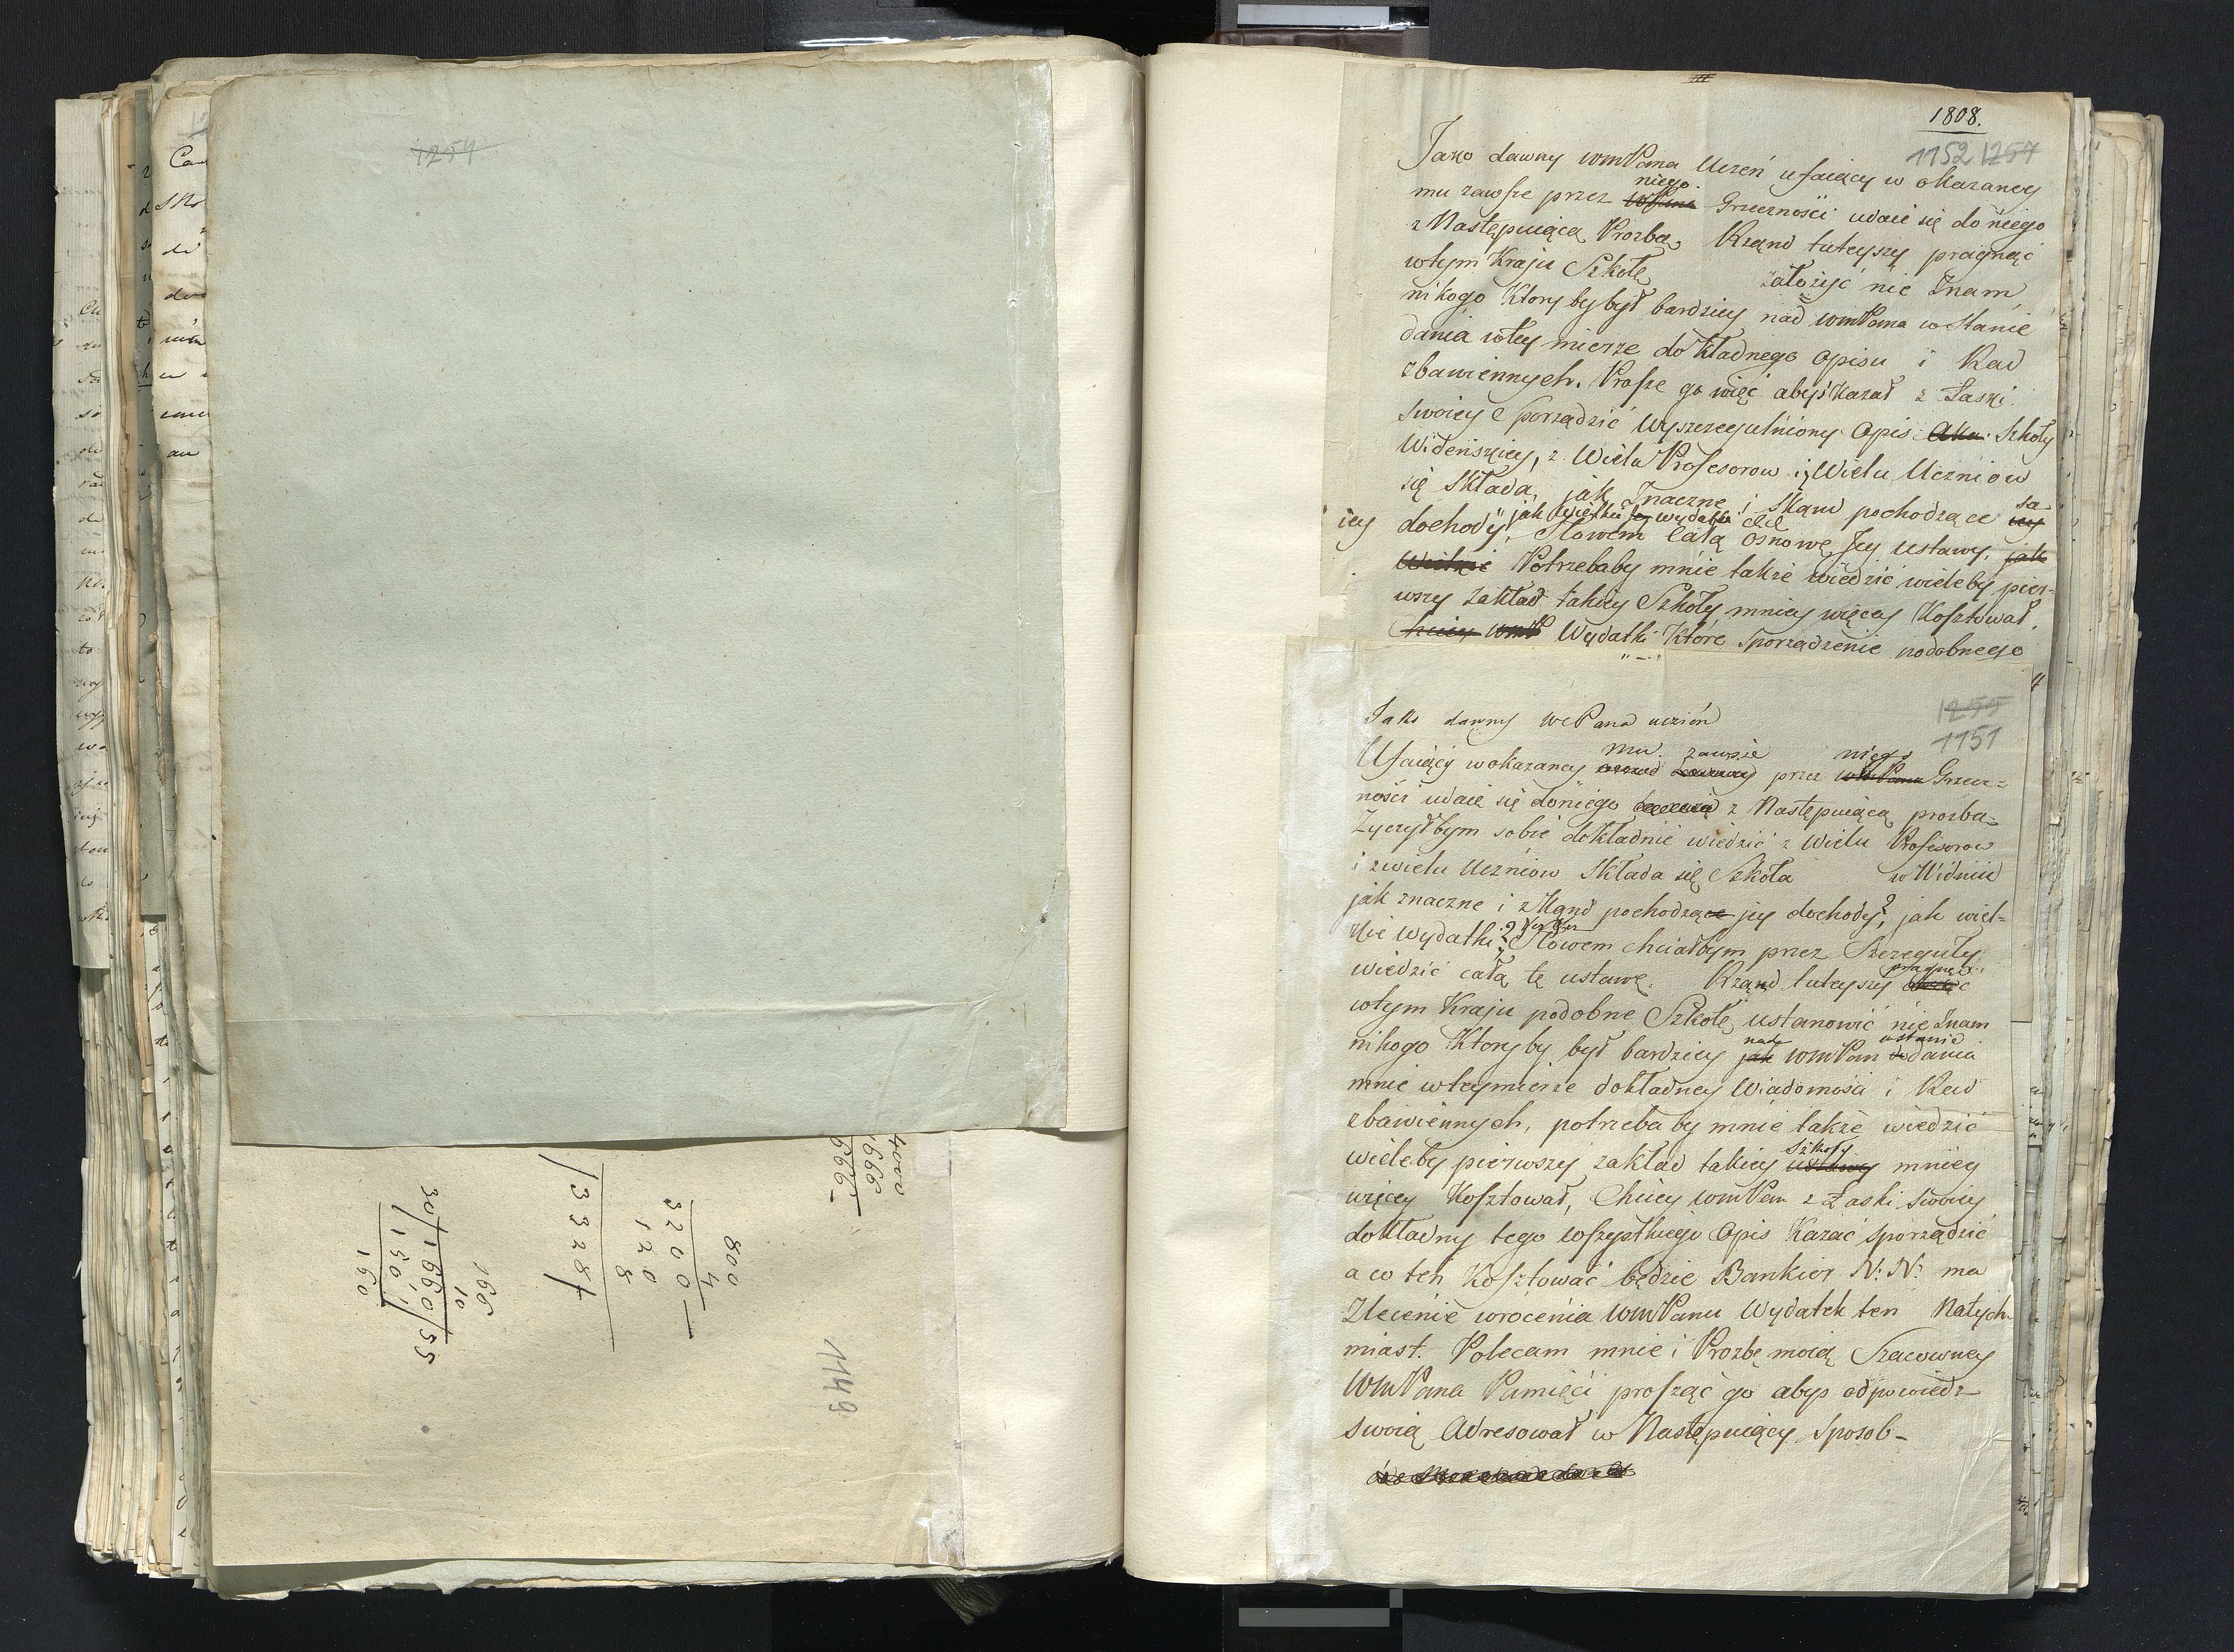 1254
4000
1666
666 –
800
4
3200 –
120
8
33287
166
10
30/1660/55
150
150
1149
1808.
1152 1257
Jako dawny WmPana Uczeń ufaiący w okazaney
niego
mu zawsze przez WPana Grzeczności udaie się do niego
z Następuiącą Prozbą. Rząnd tuteyszy pragnąć
w tym Kraju Szkołę założyć nie Znam
nikogo Ktory by był bardziey nad WmPana w stanie
dania w tey mierze dokładnego Opisu i Rad
zbawiennych. Prosze go więc abyś kazał z Łaski
swoiey Sporządzić Wyszczegulniony Opis Aka. Szkoły
Wideńskiey, z Wielu Profesorow i z Wielu Uczniow
się Składa, jak Znaczne i skąnd pochodzące są
iey
jak Wielkie są wydatki etc
iey dochody, Słowem całą Osnowę Jey Ustawy, jak
Wielkie Potrzebaby mnie także wiedzić wieleby pier-
wszy Zakład takiey Szkoły mniey więcey Kosztował.
Chciey WmP Wydatki Które Sporządzenie podobnego
4
1255
1151
Jako dawny WcPana uczión
mu zawsze niego
Ufaiący w okazaney przez WmPana Grzecz=
ności udaię się do niego z Następuiącą prozbą=
Zyczyłbym sobie dokładnie wiedzić z Wielu Profesorow
i z wielu Uczniow Składa się Szkoła w Widniu
jak znaczne i z Kąnd pochodzące jey dochody?, jak wiel=
kie wydatki? Słowem chciałbym przez Szczeguły
wiedzić całą tę ustawę. Rząnd tuteyszy pragnąć
w tym Kraju podobne Szkołę ustanowić nie Znam
nad w stanie
nikogo Ktoryby był bardziey jak WmPan dania
mnie w tey mierze dokładney Wiadomości i Rad
zbawiennych, potrzeba by mnie także wiedzić
Szkoły
wieleby pierwszy zakład takiey ustawy mniey
więcey Kosztował, Chciey WmPan z Łaski Swoiey
dokładny tego wszystkiego Opis Kazać sporządzić
a co ten Kosztować będzie Bankier N: N: ma
Zlecenie wrócenia WmPanu Wydatek ten Natych-
miast. Polecam mnie i Prozbę moią Szacowney
WmPana Pamięci prosząć go abys odpowiedz–
swoią Adresował w Następuiący Sposob–